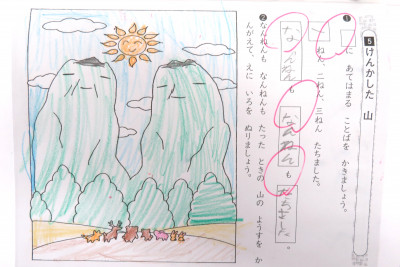 5 けんかした 山
❶ □に あてはまる ことばを かきましょう。
一ねん、二ねん、三ねん たちました。
なんねんも なんねんも たちました。
❷ なんねんも なんねんも たった ときの 山の ようすを か
んがえて、えに いろを ぬりましょう。